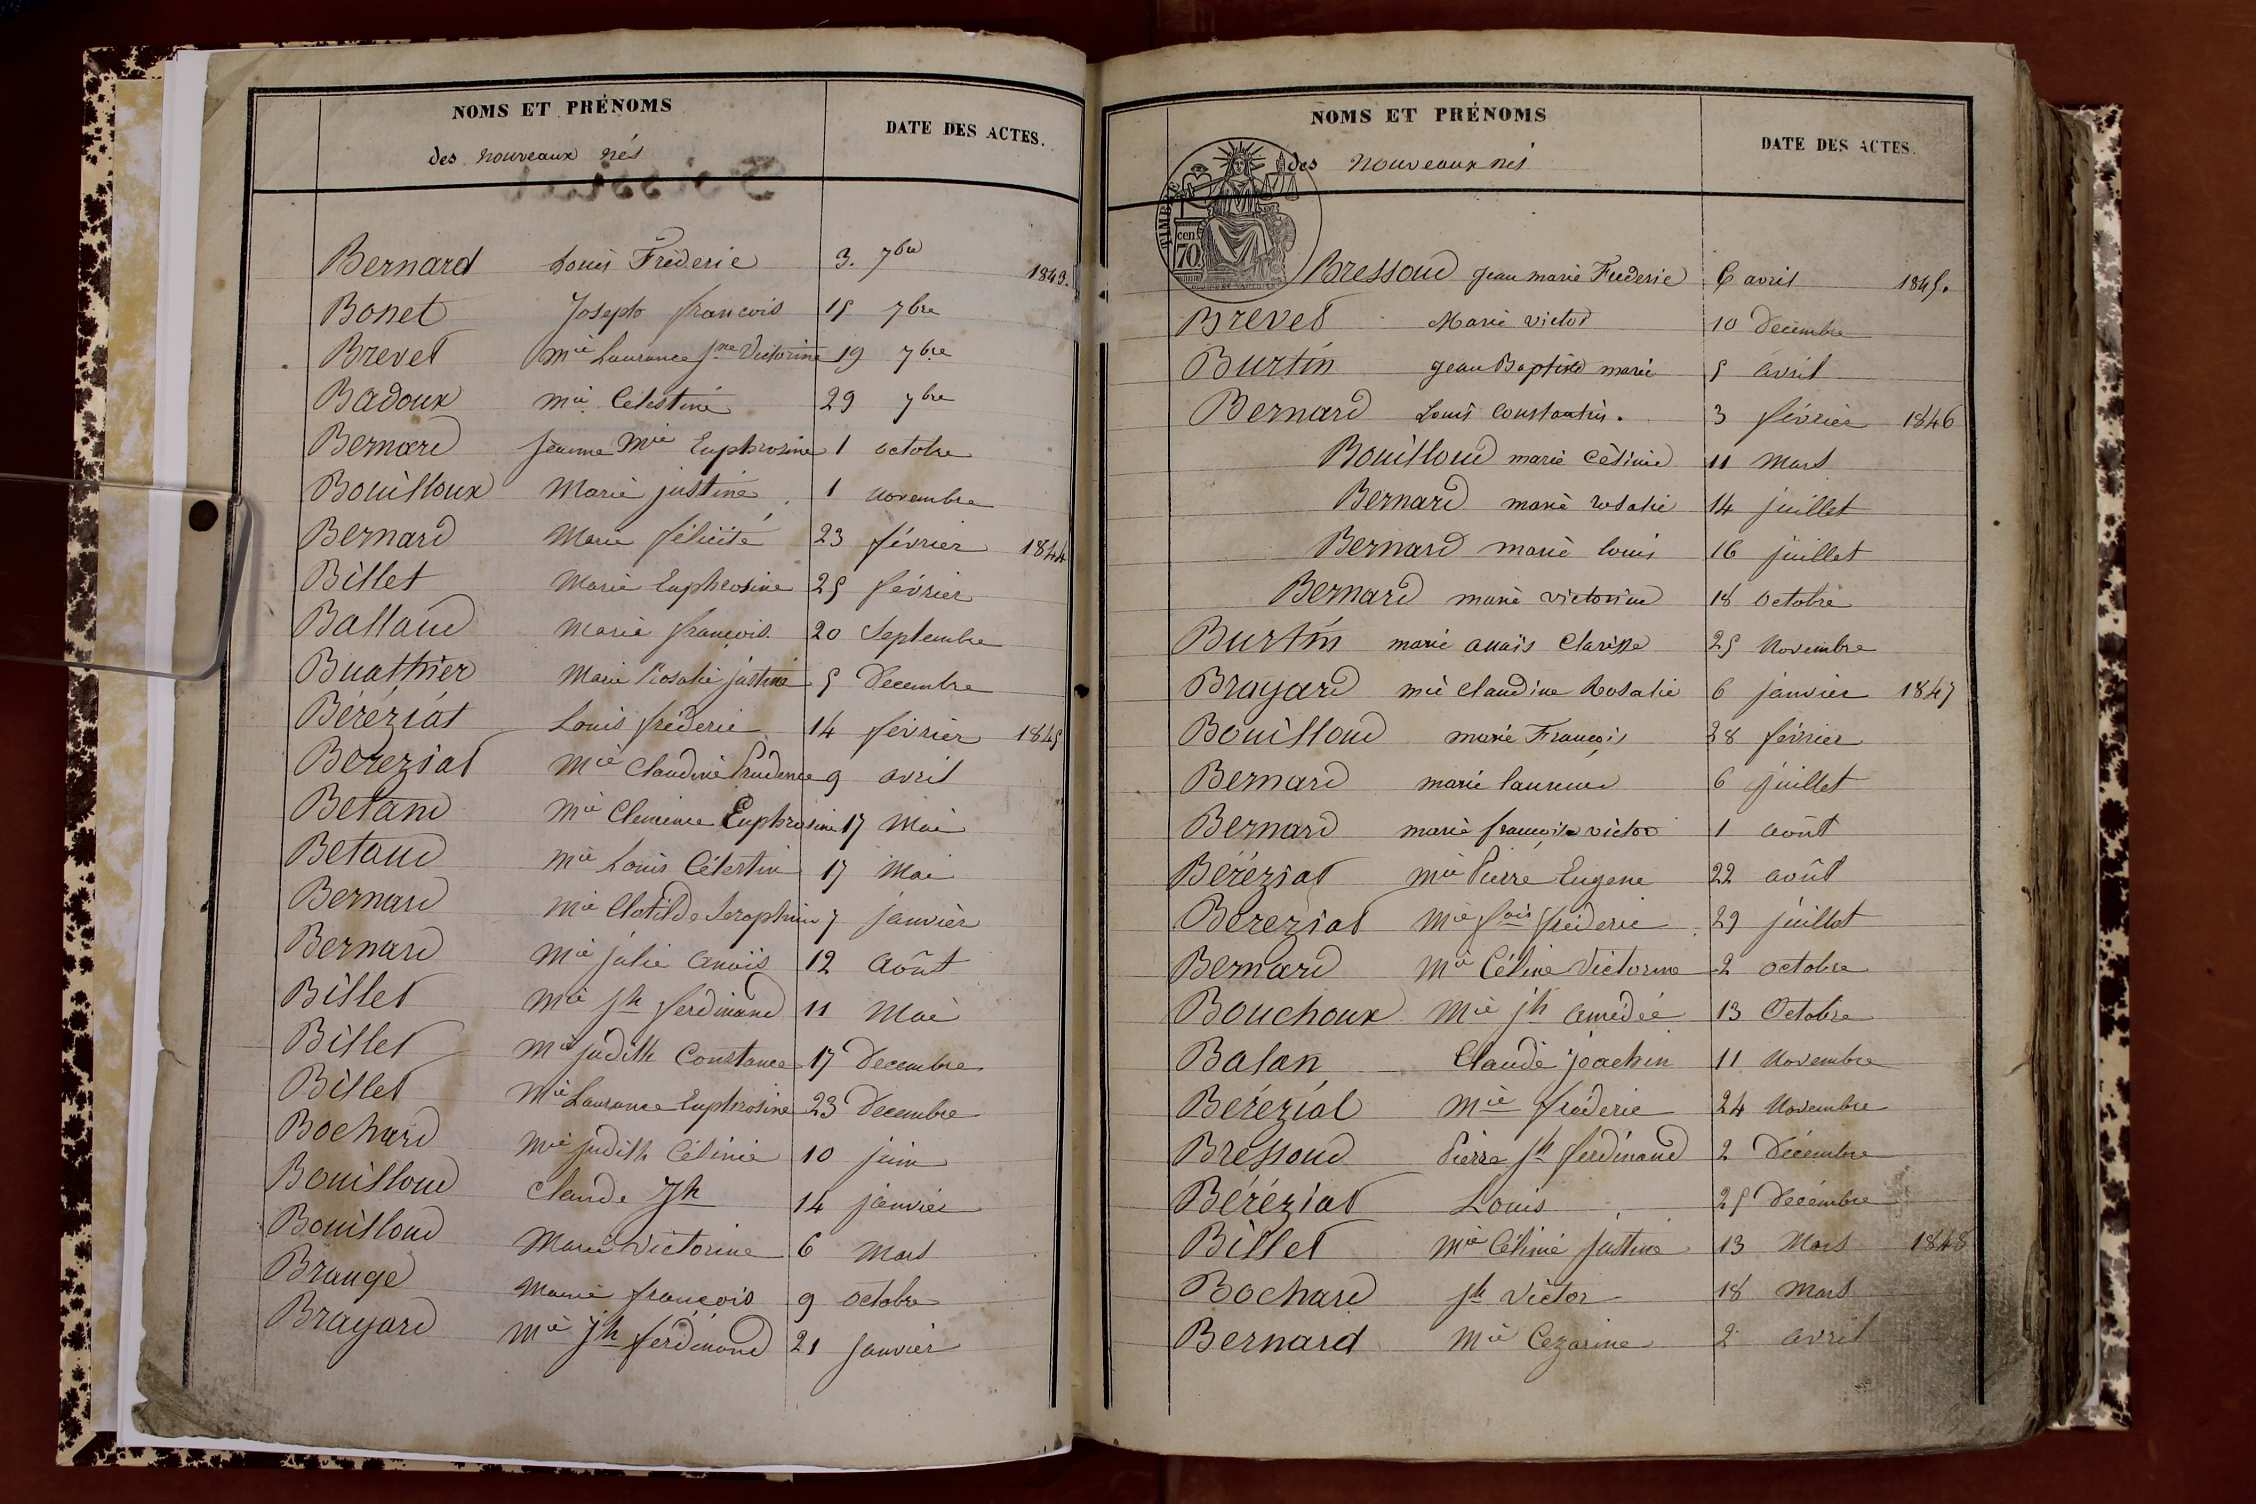 NOMS ET PRÉNOMS
DATE DES ACTES.
des nouveaux nés
Bernard Louis Fréderic 3. 7bre 1843.
Bonet Joseph francois 15 7bre
Brevet Mie Laurance Jne Victorine 19 7bre
Badoux Mie Célestine 29 7bre
Bernard Jeanne Mie Euphrosine 1 octobre
Bouilloux Marie justine 1 novembre
Bernard Marie félicité 23 février 1844
Billet Marie Euphrosine 25 février
Balland Marie françois 20 Septembre
Buathier Marie Rosalie justine 5 Decembre
Béréziat Louis fréderic 14 février 1845
Béreziat Mie Claudine Prudence 9 avril
Betand Mie Clemence Euphrosine 17 Mai
Betaud Mie Louis Célestin 17 Mai
Bernard Mie Clotilde Seraphine 7 janvier
Bernard Mie julie Anaïs 12 Août
Billet Mie Jh ferdinand 11 Mai
Billet Mie judith Constance 17 Decembre
Billet Mie Laurance Euphrosine 23 Decembre
Bochard Mie judith Célinie 10 juin
Bouilloud Claude Jh 14 janvier
Bouilloud Marie Victorine 6 Mars
Brange Marie françois 9 octobre
Brayard Mie Jh ferdinand 21 janvier
NOMS ET PRÉNOMS
DATE DES ACTES.
des nouveaux nés
TIMBRE
cen.
70
Bressoud jean marie Frederic 6 avril 1845.
Brevet Marie victor 10 Decembre
Burtin jean Baptiste marie 5 avril
Bernard Louis constantin. 3 février 1846
Bouilloud marie Célinie 11 Mars
Bernard marie rosalie 14 juillet
Bernard marie louis 16 juillet
Bernard marie victorine 18 octobre
Burtin marie anaïs Clarisse 25 Novembre
Brayard mie claudine Rosalie 6 janvier 1847
Bouilloud marie François 28 février
Bernard marie 6 juillet
Bernard marie françois victor 1 août
Béréziat Mie Pierre Eugene 22 août
Béreziat Mie fois fréderic 29 juillet
Bernard Mie Céline Victorine 2 octobre
Bouchoux Mie jh Amédée 13 Octobre
Balan Claude joachin 11 Novembre
Béréziat Mie fréderic 24 Novembre
Bressoud Pierre Jh ferdinand 2 Décembre
Béréziat Louis 25 Decémbre
Billet Mie Célinie justine 13 Mars 1848
Bochard Jh Victor 18 Mars
Bernard Mie Cezarine 2 avril